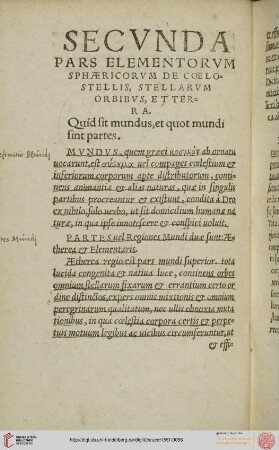 SECVNDA
PARS ELEMENTORVM
SPHÆRICORVM DE COELO-
STELLIS, STELLARVM
ORBIBVS, ET TER-
RA.
Quid sit mundus, et quot mundi
sint partes.
MVNDVS, quem græci κοσμὸν ab ornatu
uocarunt, est σύστημα uel compages cœlestium et
inferiorum corporum apte distributorum, conti-
nens animantia & alias naturas, quæ in singulis
partibus procreantur & existunt, condita à Deo
ex nihilo solo uerbo, ut sit domicilium humanæ na
turæ, in qua ipse innotescere & conspici uoluit.
PARTES uel Regiones Mundi duæ sunt: Æ-
therea & Elementaris.
Ætherea regio est pars mundi superior tota
lucida congenita & natiua luce, continens orbes
omnium stellarum fixarum & errantium certo or
dine distinctos, expers omnis mixtionis & omnium
peregrinarum qualitatum, nec ullis obnoxia muta
tionibus, in qua cœlestia corpora certis & perpe-
tuis motuum legibus ac uicibus circumferuntur, ut
& effi-
Mundi
Mundi